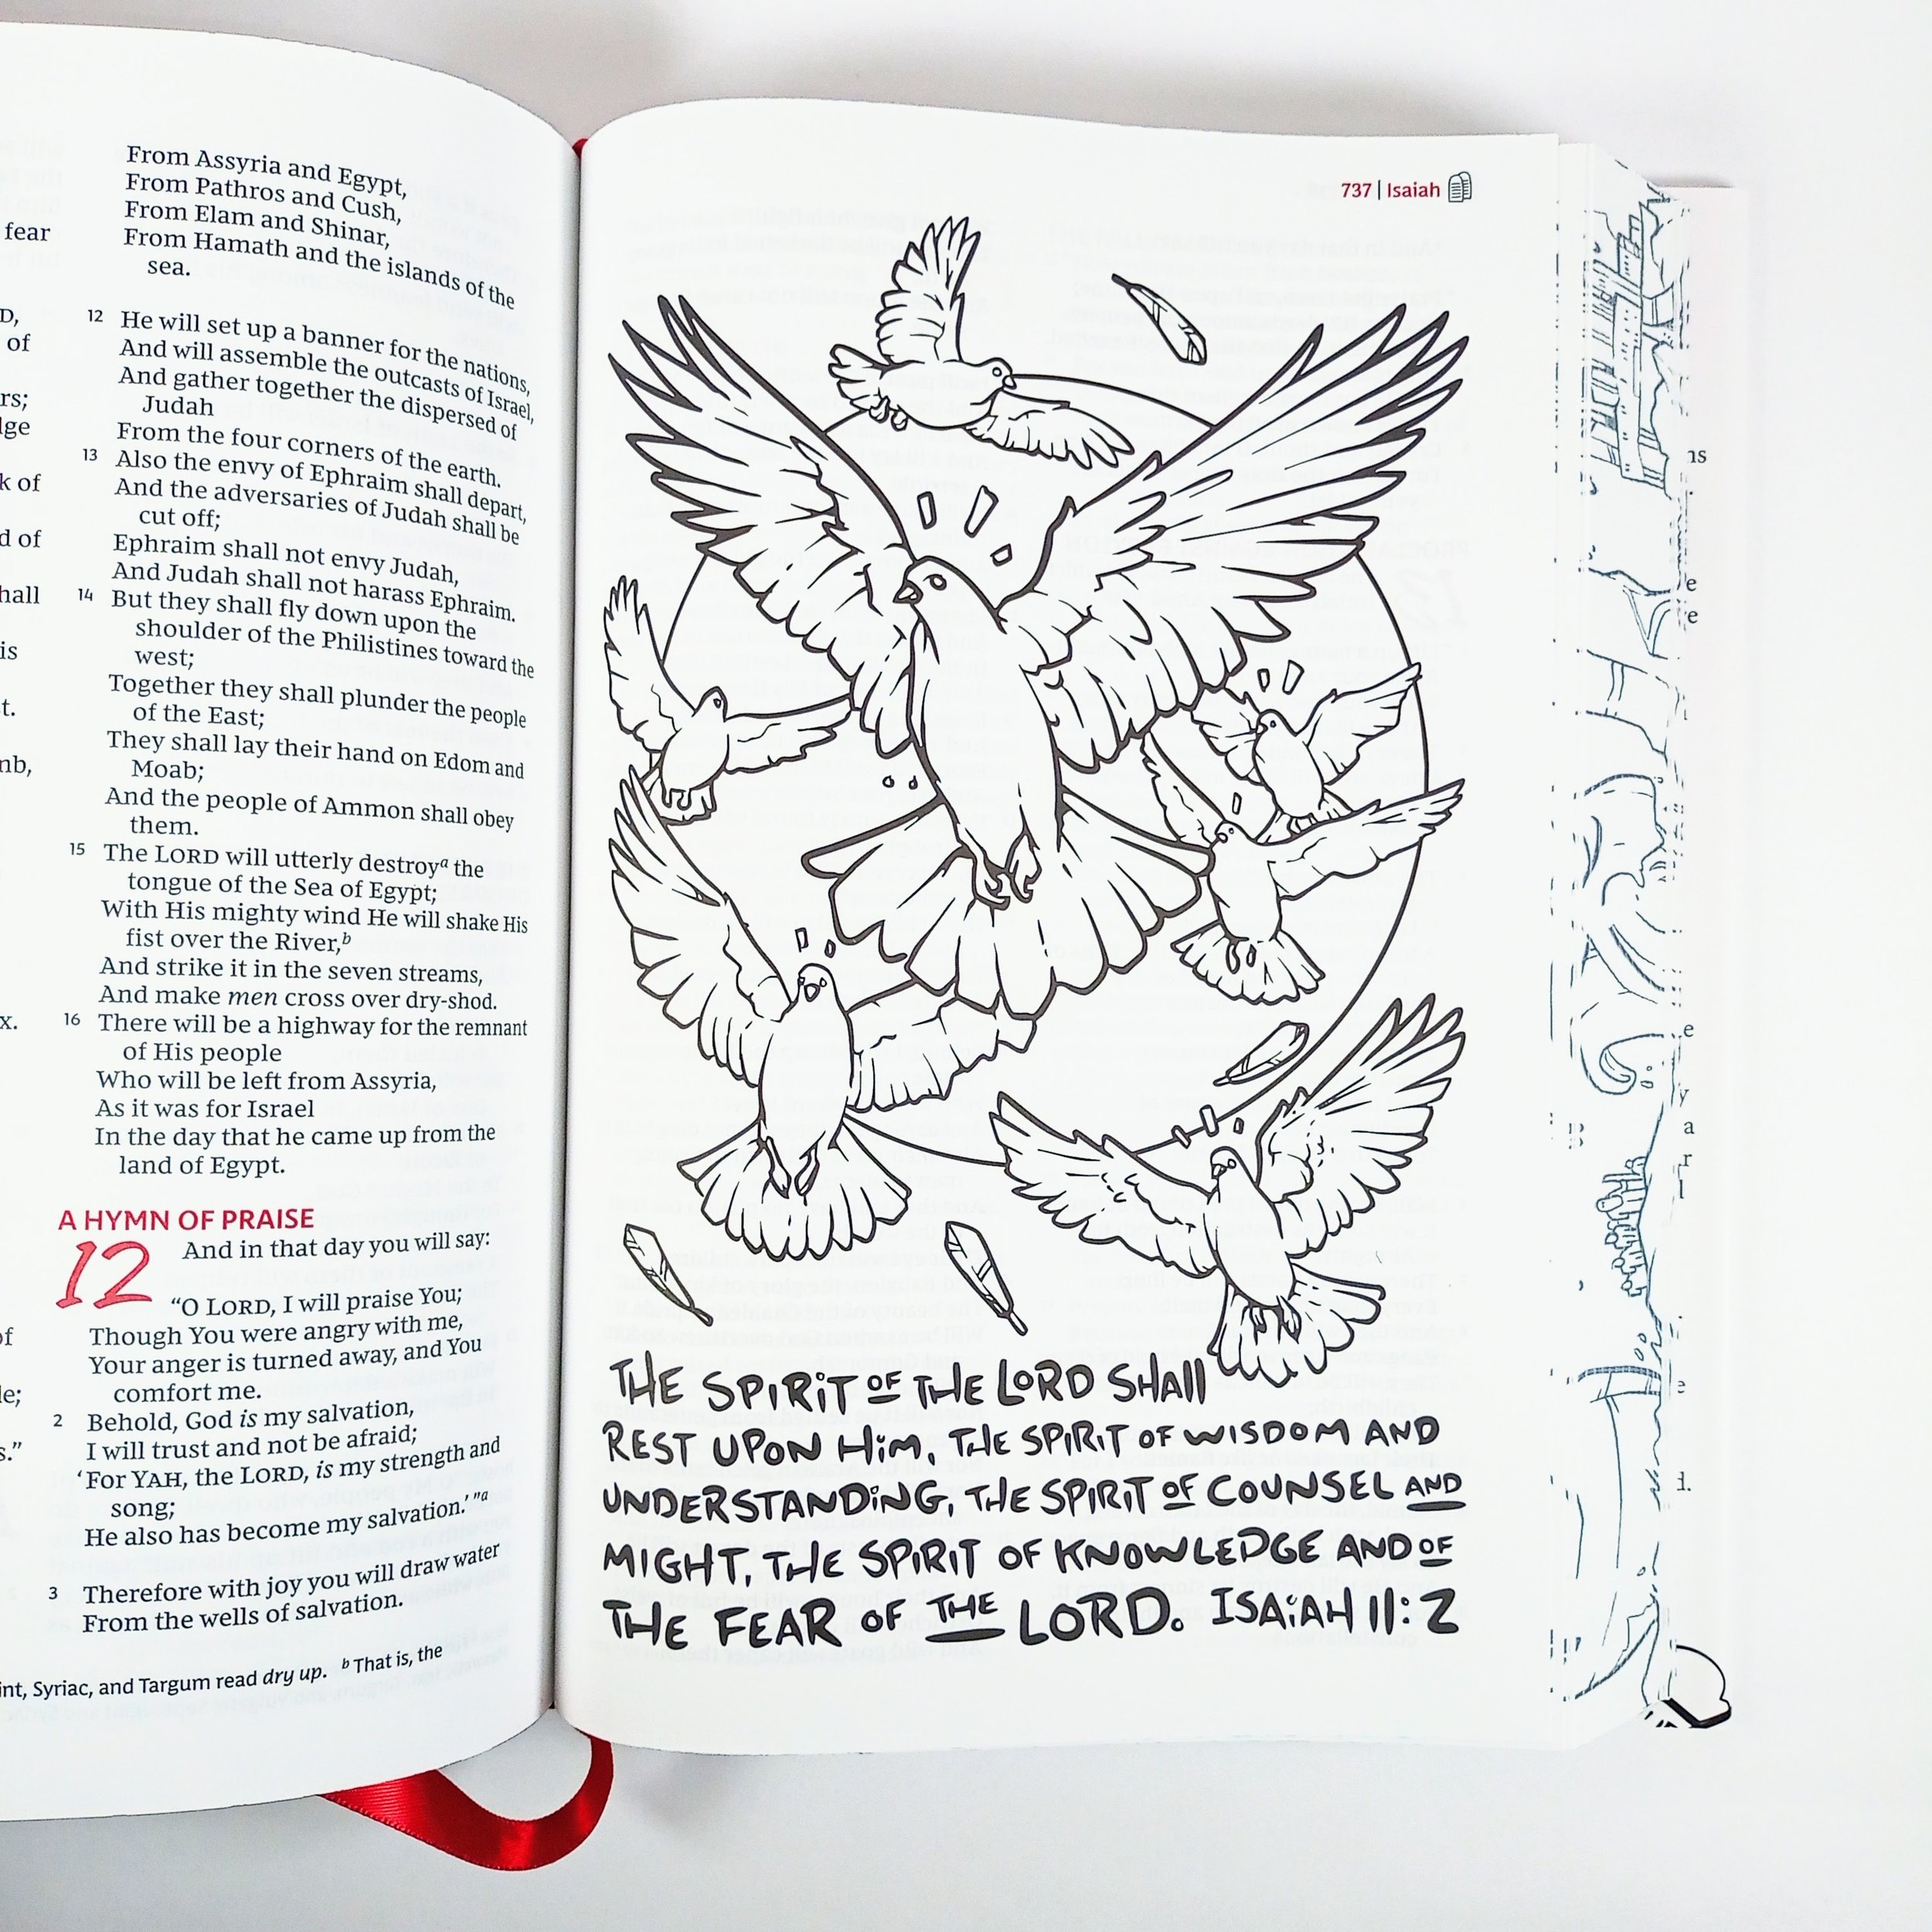 From Assyria and Egypt,
From Pathros and Cush,
From Elam and Shinar,
From Hamath and the islands of the
sea.
12 He will set up a banner for the nations,
And will assemble the outcasts of Israel,
And gather together the dispersed of
Judah
From the four corners of the earth.
13 Also the envy of Ephraim shall depart,
And the adversaries of Judah shall be
cut off;
Ephraim shall not envy Judah,
And Judah shall not harass Ephraim.
14 But they shall fly down upon the
shoulder of the Philistines toward the
west;
Together they shall plunder the people
of the East;
They shall lay their hand on Edom and
Moab;
And the people of Ammon shall obey
them.
15 The LORD will utterly destroyª the
tongue of the Sea of Egypt;
With His mighty wind He will shake His
fist over the River,ᵇ
And strike it in the seven streams,
And make men cross over dry-shod.
16 There will be a highway for the remnant
of His people
Who will be left from Assyria,
As it was for Israel
In the day that he came up from the
land of Egypt.
A HYMN OF PRAISE
12 And in that day you will say:
“O LORD, I will praise You;
Though You were angry with me,
Your anger is turned away, and You
comfort me.
2 Behold, God is my salvation,
I will trust and not be afraid;
‘For YAH, the LORD, is my strength and
song;
He also has become my salvation.’ ”ª
3 Therefore with joy you will draw water
From the wells of salvation.
Syriac, and Targum read dry up. ᵇ That is, the
fear
of
of
of
is
of
737 | Isaiah
THE SPIRiT OF THE LORD SHAll
REST UPON HiM, THE SPIRiT OF WISDOM AND
UNDERSTANDiNG, THE SPIRiT OF COUNSEL AND
MIGHT, THE SPIRiT OF KNOWLEDGE AND OF
THE FEAR OF THE LORD. ISAiAH 11:2